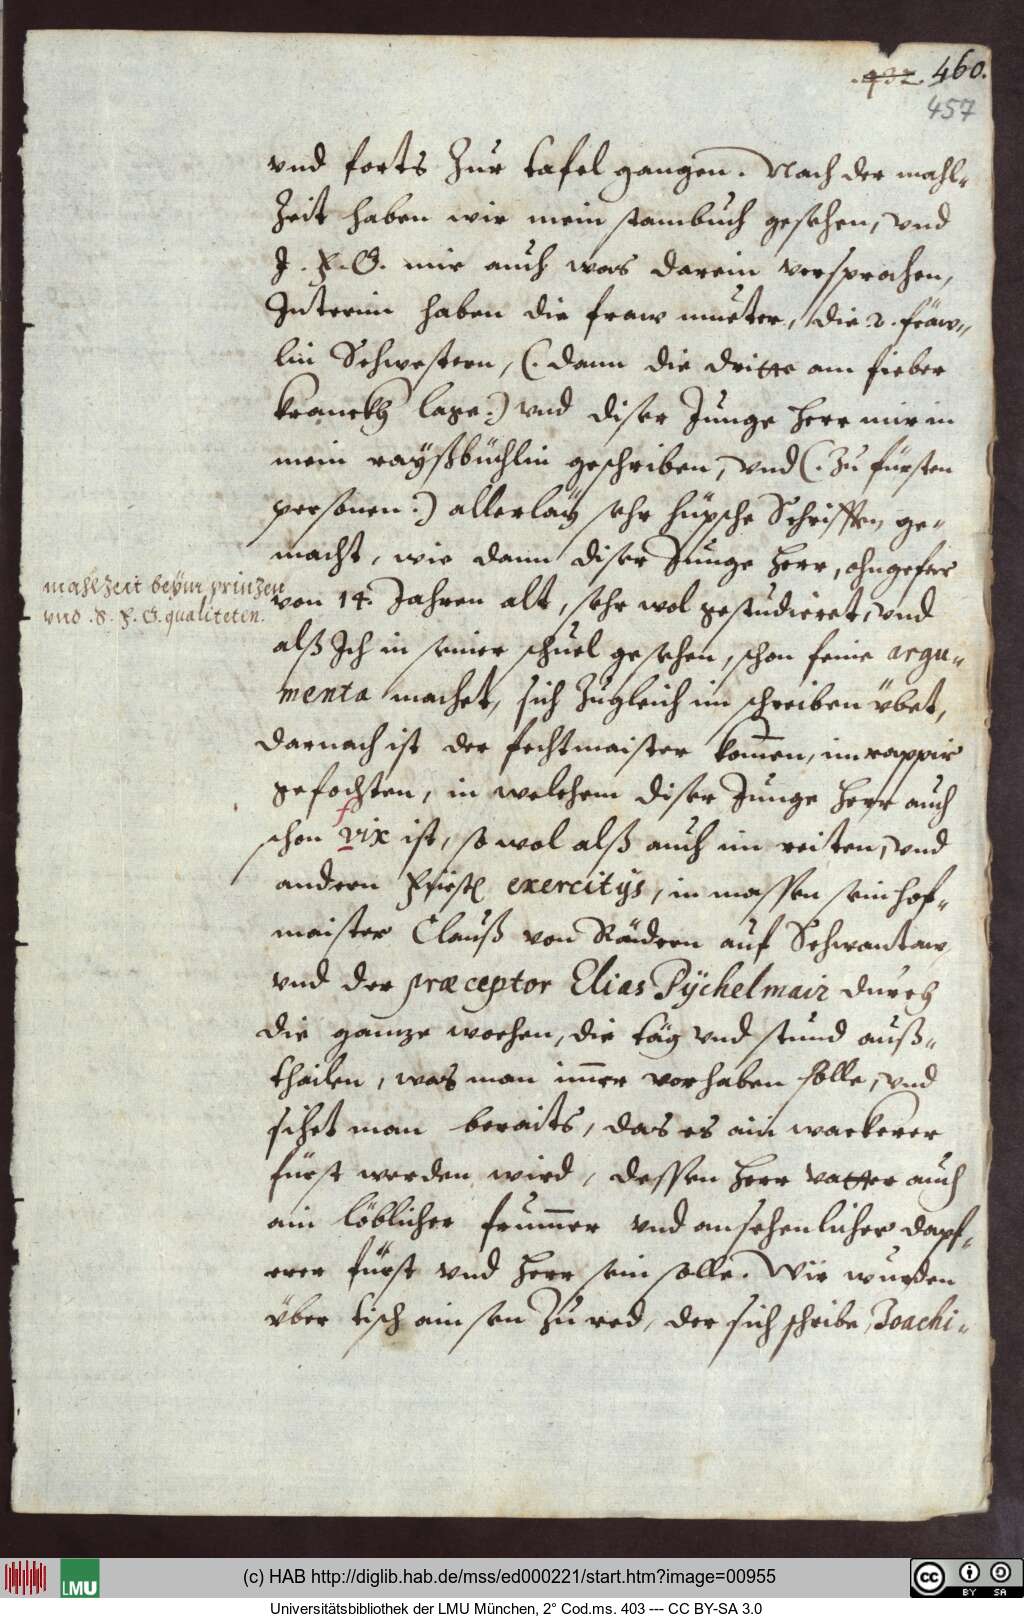 432. 460.
457
vnd forts Zur tafel gangen. Nach der mahl-
Zeit haben wir mein stambuch gesehen, vnd
J. F. G. mir auch was darein versprochen,
Interim haben die fraw mueter, die 2. fräw-
lin Schwestern, (. dann die dritte am fieber
kranckh lage:) vnd diser Junge herr mir in
mein rayßbüchlin geschriben, vnd (. Zu fürsten
personen:) allerlay sehr hüpsche Schrifften, ge-
macht, wie dann diser Junge herr, ohngefar
mahlzeit beÿm prinzen
vnd S. F. G. qualiteten.
von 14. Jahren alt, sehr wol gestudieret, vnd
alß Ich in seiner schuel gesehen, schon feine argu-
menta machet, sich Zugleich im schreiben übet,
darnach ist der fechtmaister kommen, im rappir
gefochten, in welchem diser Junge herr auch
schon vix ist, so wol alß auch im reiten, vnd
andern exercitijs, in massen sein hof-
maister Clauß von Räidern auf Schwantaw,
vnd der præceptor Elias Pÿchelmair durch
die gantze wochen, die täg vnd stund auß-
thailen, was man immer vorhaben solle, vnd
sihet man beraits, das es ain wackerer
fürst werden wird, dessen herr vatter auch
ain löblicher frummer vnd ansehenlicher dapf-
erer fürst vnd herr sein solle. Wir wurden
über tisch ainsen Zu red, der sich schribe, Joachi-
(c) HAB http://diglib.hab.de/mss/ed000221/start.htm?image=00955
LMU
cc BY SA
Universitätsbibliothek der LMU München, 2° Cod.ms. 403 --- CC BY-SA 3.0